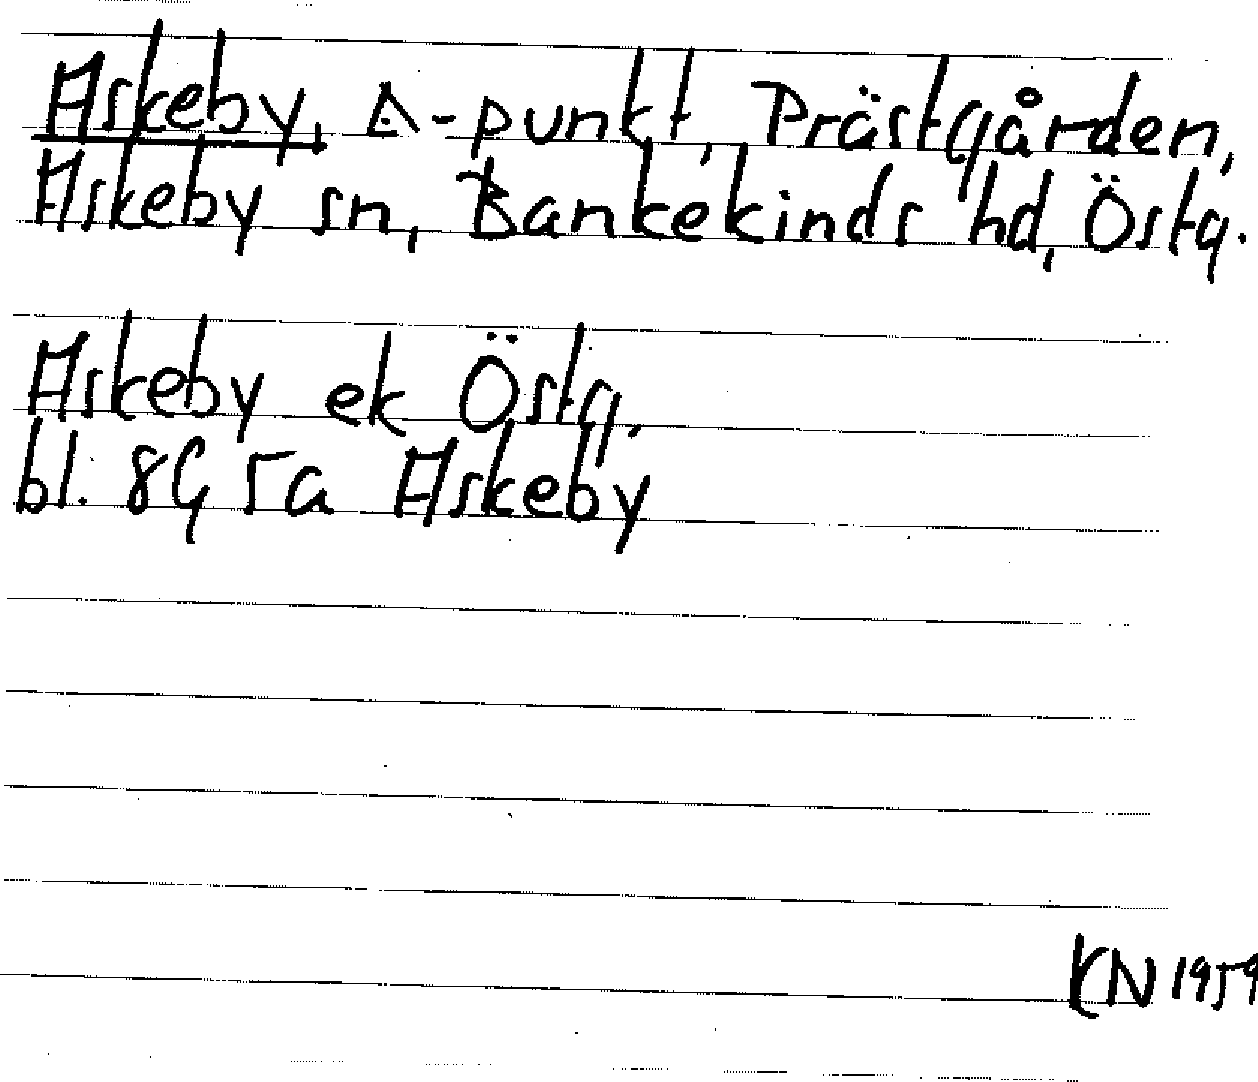 Askeby, Δ-punkt, Prästgården,
Askeby sn, Bankekinds hd, Östg.
Askeby ek Östg,
bl. 8G 5a Askeby
KN 1959